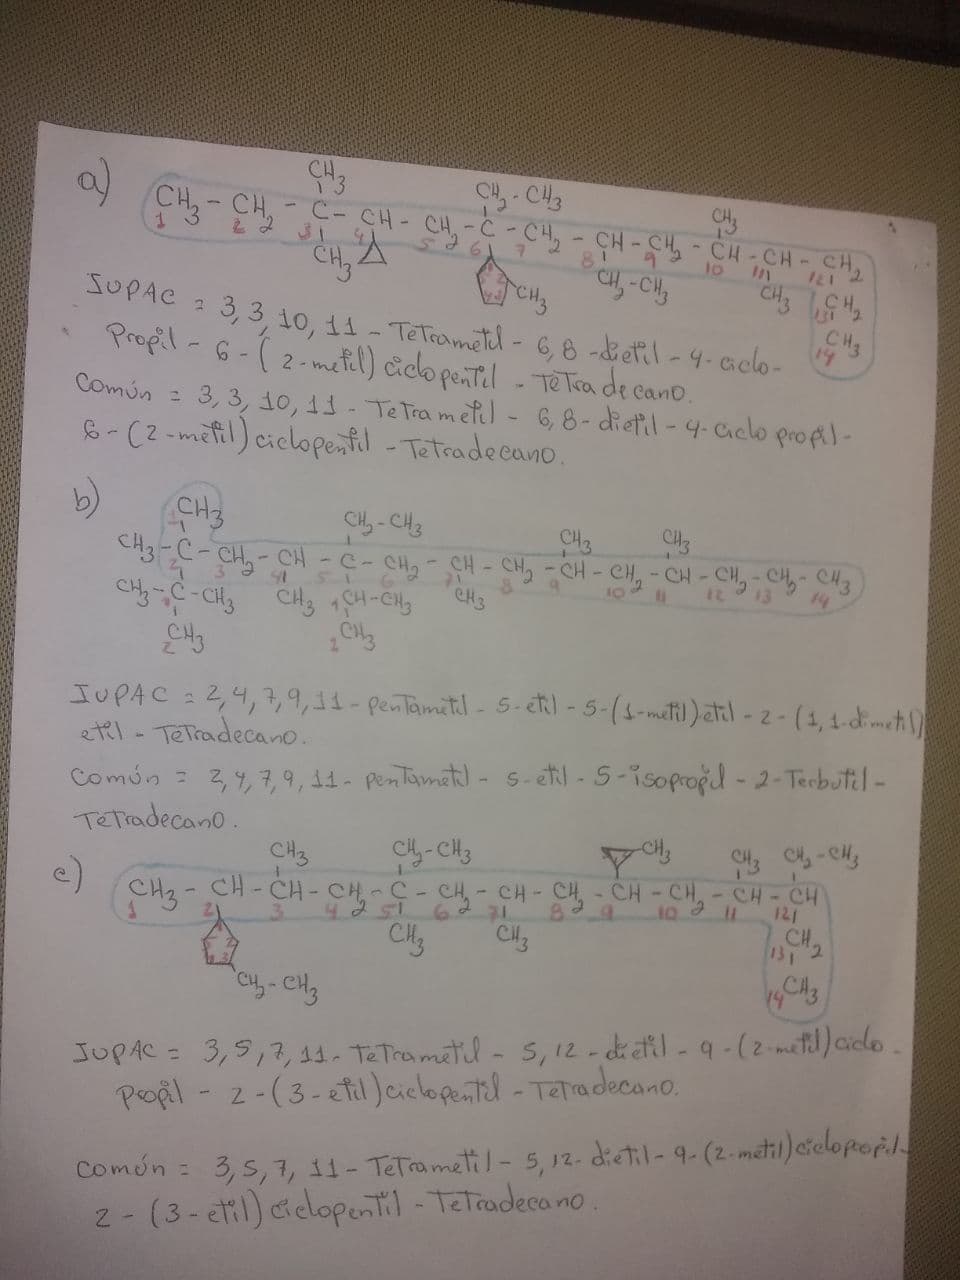 a)
CH3 CH2-CH3 CH3
CH3-CH2-C-CH-CH2-C-CH2-CH-CH2-CH-CH-CH2
1 2 3 4 5 6 7 8 9 10 11 12
CH3 CH3 CH2-CH3 CH3 13 CH2
14 CH3
IUPAC = 3,3,10,11-Tetrametil-6,8-dietil-4-ciclo-
Propil-6-(2-metil)ciclopentil-Tetradecano.
Común = 3,3,10,11-Tetrametil-6,8-dietil-4-ciclopropil-
6-(2-metil)ciclopentil-Tetradecano.
b)
1 CH3 CH2-CH3 CH3 CH3
CH3-C-CH2-CH-C-CH2-CH-CH2-CH-CH2-CH-CH2-CH2-CH3
2 3 4 5 6 7 8 9 10 11 12 13 14
CH3-C-CH3 CH3 1 CH-CH3 CH3
2 CH3 2 CH3
IUPAC = 2,4,7,9,11-pentametil-5-etil-5-(1-metil)etil-2-(1,1-dimetil)
etil-Tetradecano.
Común = 2,4,7,9,11-pentametil-5-etil-5-isopropil-2-Terbutil-
Tetradecano.
c)
CH3 CH2-CH3 CH3 CH3 CH2-CH3
CH3-CH-CH-CH2-C-CH2-CH-CH2-CH-CH2-CH-CH
1 2 3 4 5 6 7 8 9 10 11 12
CH3 CH3 13 CH2
CH2-CH3 14 CH3
IUPAC = 3,5,7,11-Tetrametil-5,12-dietil-9-(2-metil)ciclo-
Propil-2-(3-etil)ciclopentil-Tetradecano.
común = 3,5,7,11-Tetrametil-5,12-dietil-9-(2-metil)ciclopropil-
2-(3-etil)ciclopentil-Tetradecano.